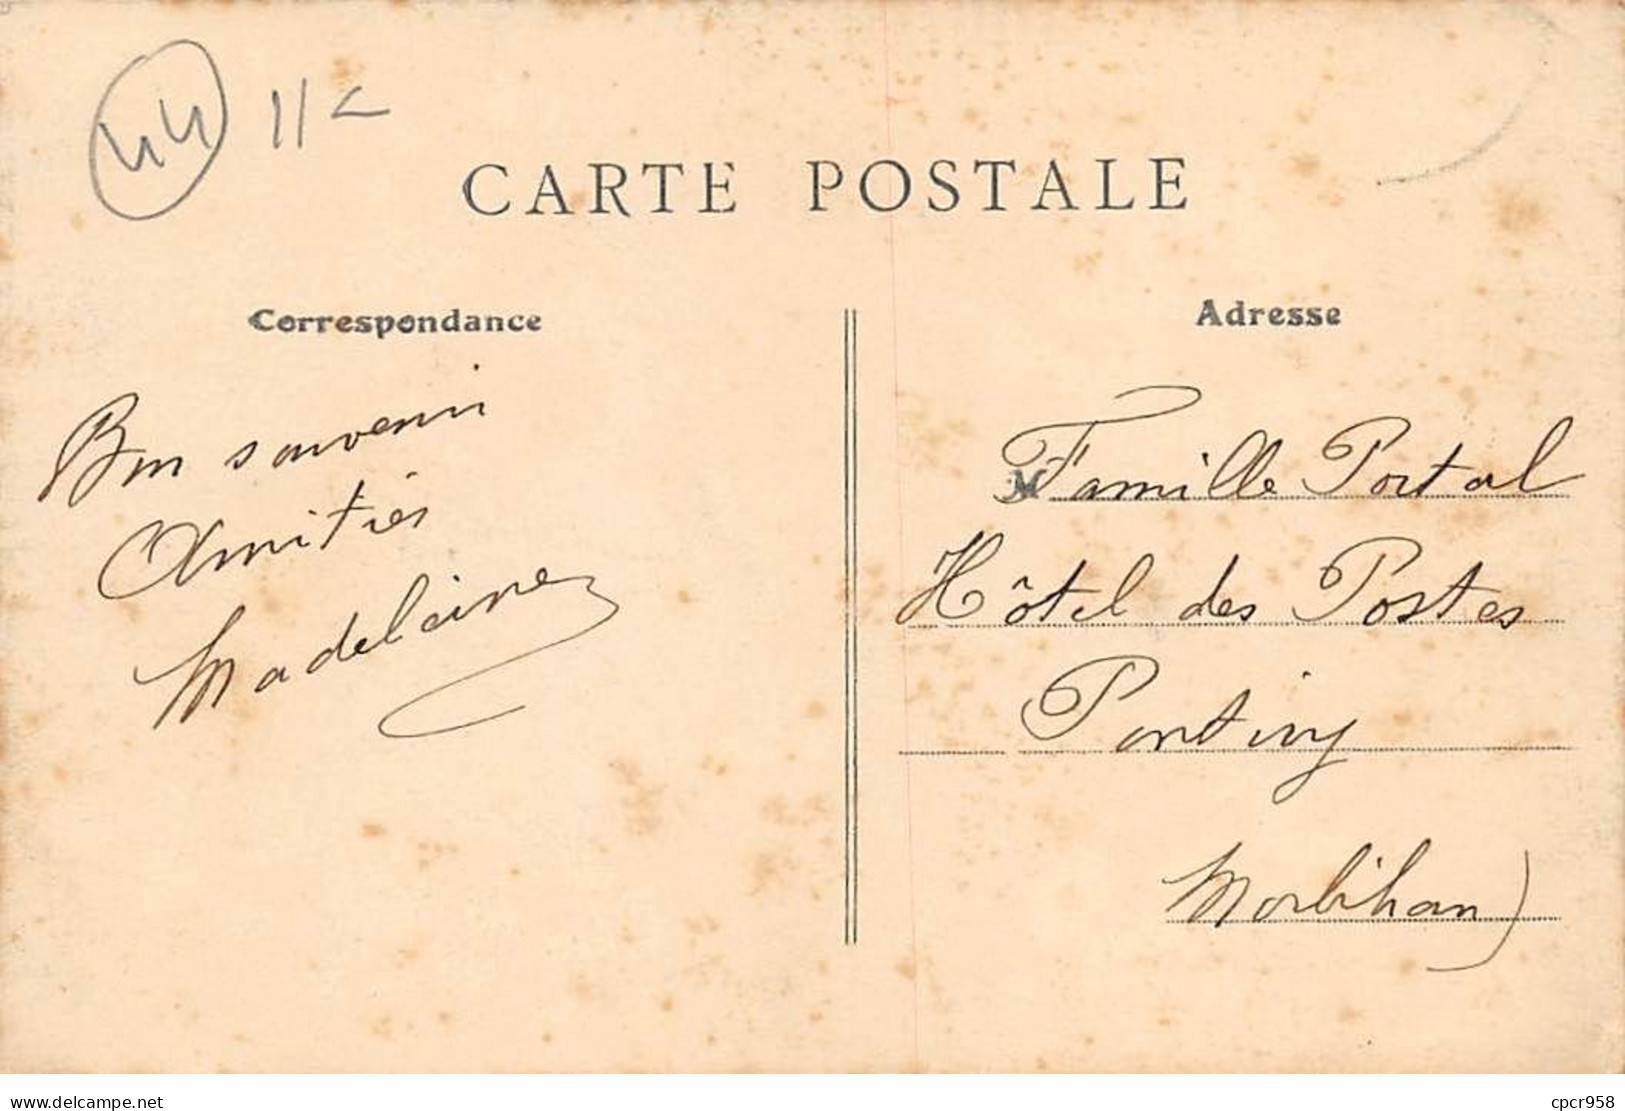 44 11<
CARTE POSTALE
Correspondance
Adresse
Bon souvenir
Amitiés
Madeleine
M Famille Portal
Hôtel des Postes
Pontivy
Morbihan)
www.delcampe.net
cpcr958